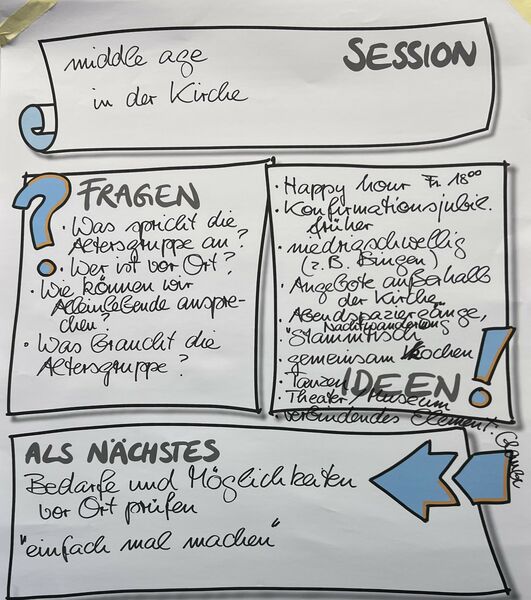 SESSION
middle age
in der Kirche
FRAGEN
• Was spricht die
Altersgruppe an?
• Wer ist vor Ort?
• Wie können wir
Alleinlebende anspre-
chen?
• Was braucht die
Altersgruppe?
• Happy hour Fr. 18⁰⁰
• Konfirmationsjubil.
früher
• niedrigschwellig
(z.B. Singen)
• Angebote außerhalb
der Kirche
• Abendspaziergänge,
Nachtwanderung
• "Stammtisch"
• gemeinsam kochen
• Tanzen
IDEEN!
• Theater / Museum
verbindendes Element:
ALS NÄCHSTES
Bedarfe und Möglichkeiten
vor Ort prüfen
"einfach mal machen"